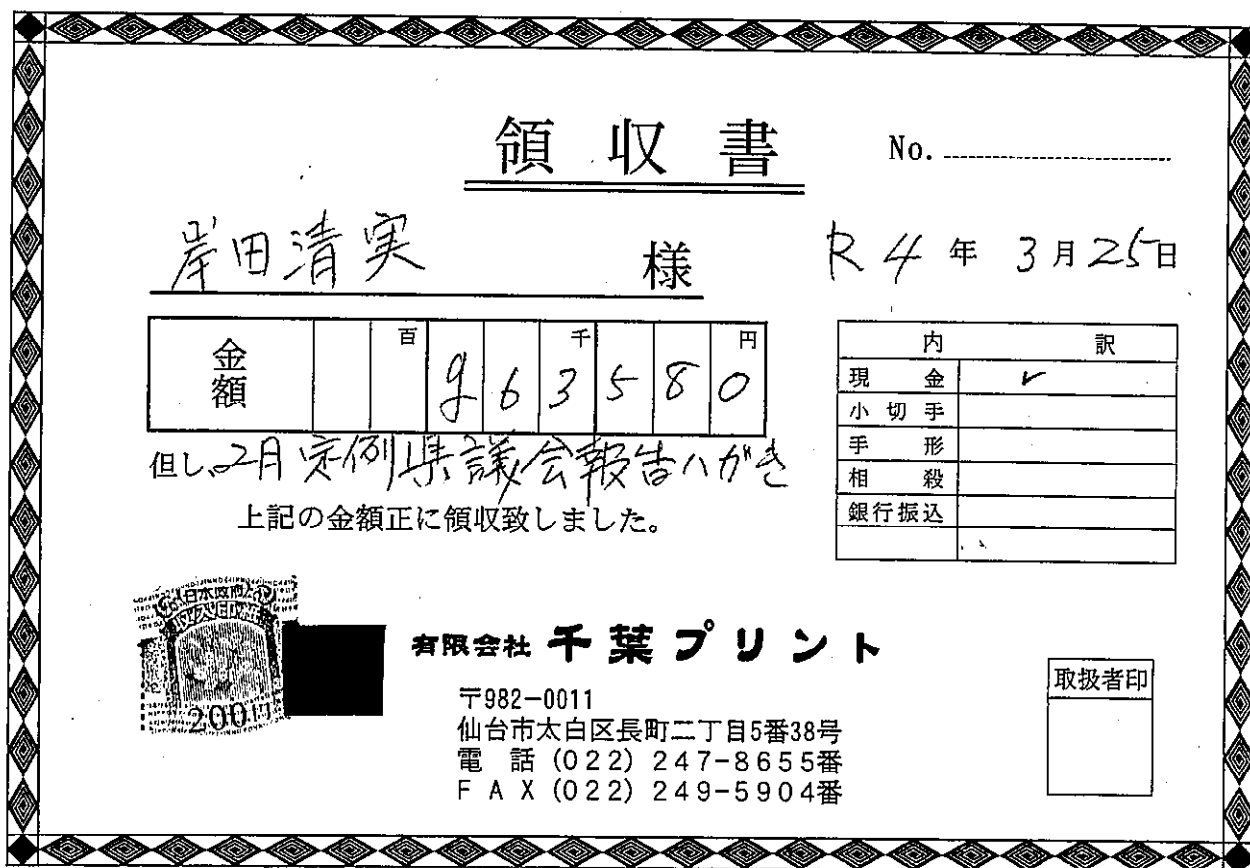 領収書
No.
岸田清実 様
R4年3月25日
金額 百 9 6 千 3 5 8 円 0
但し、2月定例県議会報告ハガき
上記の金額正に領収致しました。
内訳
現金 ✓
小切手
手形
相殺
銀行振込
日本政府
収入印紙
200円
有限会社 千葉プリント
〒982-0011
仙台市太白区長町二丁目5番38号
電話 (022) 247-8655番
FAX (022) 249-5904番
取扱者印